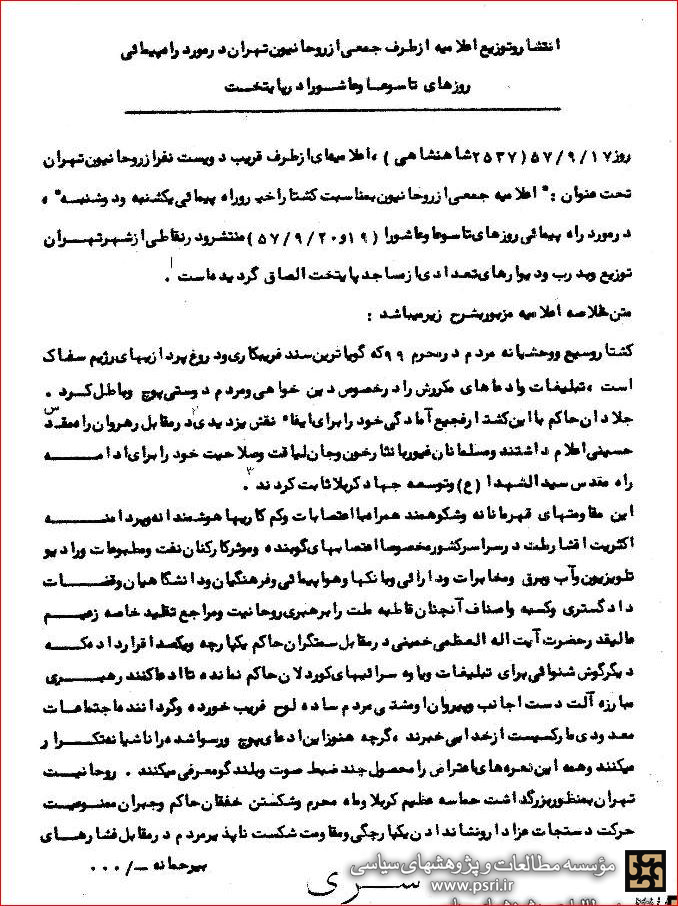 انتشار و توزیع اعلامیه از طرف جمعی از روحانیون تهران در مورد راهپیمائی
روزهای تاسوعا و عاشورا در پایتخت
روز ۵۷/۹/۱۷ (۲۵۳۷ شاهنشاهی) ، اعلامیه‌ای از طرف قریب دویست نفر از روحانیون تهران
تحت عنوان : " اعلامیه جمعی از روحانیون بمناسبت کشتار اخیر و راه پیمائی یکشنبه و دوشنبه " ،
در مورد راه پیمائی روزهای تاسوعا و عاشورا (۱۹ و ۵۷/۹/۲۰) منتشر و در نقاطی از شهر تهران
توزیع و به درب و دیوارهای تعدادی از مساجد پایتخت الصاق گردیده است ۱.
متن خلاصه اعلامیه مزبور بشرح زیر میباشد :
کشتار وسیع و وحشیانه مردم در محرم ۹۹ که گویاترین سند فریبکاری و دروغ پردازیهای رژیم سفاک
است ، تبلیغات و ادعاهای مکررش را در خصوص دین خواهی و مردم دوستی پوچ و باطل کرد .
جلادان حاکم با این کشتار فجیع آمادگی خود را برای ایفاء نقش یزیدی ۲ در مقابل رهروان راه مقدس
حسینی اعلام داشتند و مسلمانان غیور با نثار خون و جان لیاقت و صلاحیت خود را برای ادامه
راه مقدس سیدالشهدا (ع) و توسعه جهاد کربلا ثابت کردند ۳.
این مقاومتهای قهرمانانه و شکوهمند همراه با اعتصابات و کم کاریها هوشمندانه و پردامنه
اکثریت اقشار ملت در سراسر کشور مخصوصا اعتصابهای کوبنده و موثر کارکنان نفت و مطبوعات و رادیو
تلویزیون و آب و برق و مخابرات و دارائی و بانکها و هواپیمائی و فرهنگیان و دانشگاهیان و قضات
دادگستری و کسبه و اصناف آنچنان قاطبه ملت را برهبری روحانیت و مراجع تقلید خاصه زعیم
عالیقدر حضرت آیت اله العظمی خمینی در مقابل ستمگران حاکم یکپارچه و یکصدا قرار داده که
دیگر گوش شنوائی برای تبلیغات و یاوه سرائیهای کوردلان حاکم نمانده تا ادعا کنند رهبری
مبارزه آلت دست اجانب و پیروان او مشتی مردم ساده لوح فریب خورده و گرداننده اجتماعات
معدودی مارکسیست از خدا بی خبرند ، گرچه هنوز این ادعای پوچ و رسوا شده را ناشیانه تکرار
میکنند و همه این نعره‌های اعتراض را محصول چند ضبط صوت و بلندگو معرفی میکنند . روحانیت
تهران بمنظور بزرگداشت حماسه عظیم کربلا و ماه محرم و شکستن خفقان حاکم و جبران ممنوعیت
حرکت دستجات عزادار و نشان دادن یکپارچگی و مقاومت شکست ناپذیر مردم در مقابل فشارهای
بیرحمانه ــ/۰۰۰
سری
مؤسسه مطالعات و پژوهشهای سیاسی
www.psri.ir